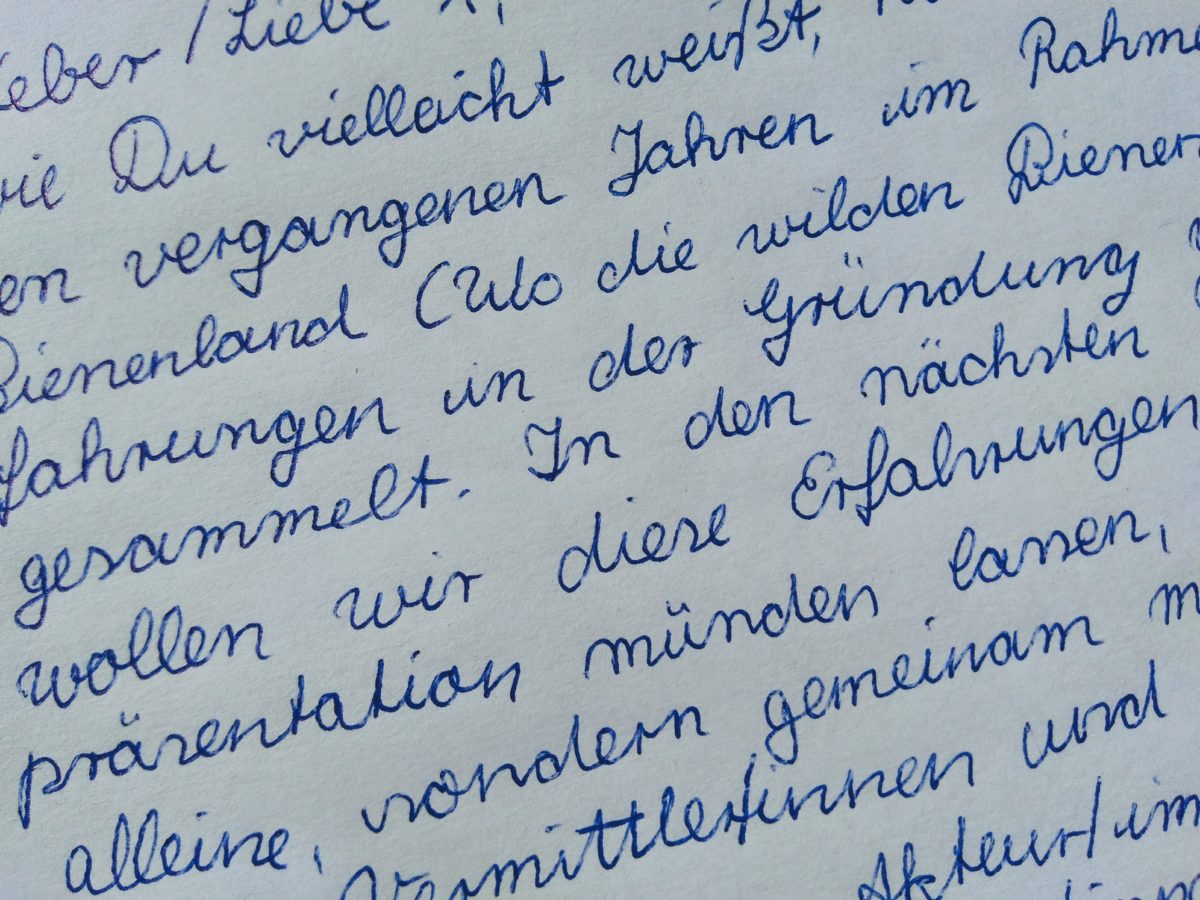 ieber / Liebe X,
wie Du vielleicht weißt,
en vergangenen Jahren im Rahme
Bienenland (Wo die wilden Bienen
fahrungen in der Gründung
gesammelt. In den nächsten
wollen wir diese Erfahrungen
präsentation münden lassen,
alleine, sondern gemeinsam m
Vermittler/innen und
Akteur/inn